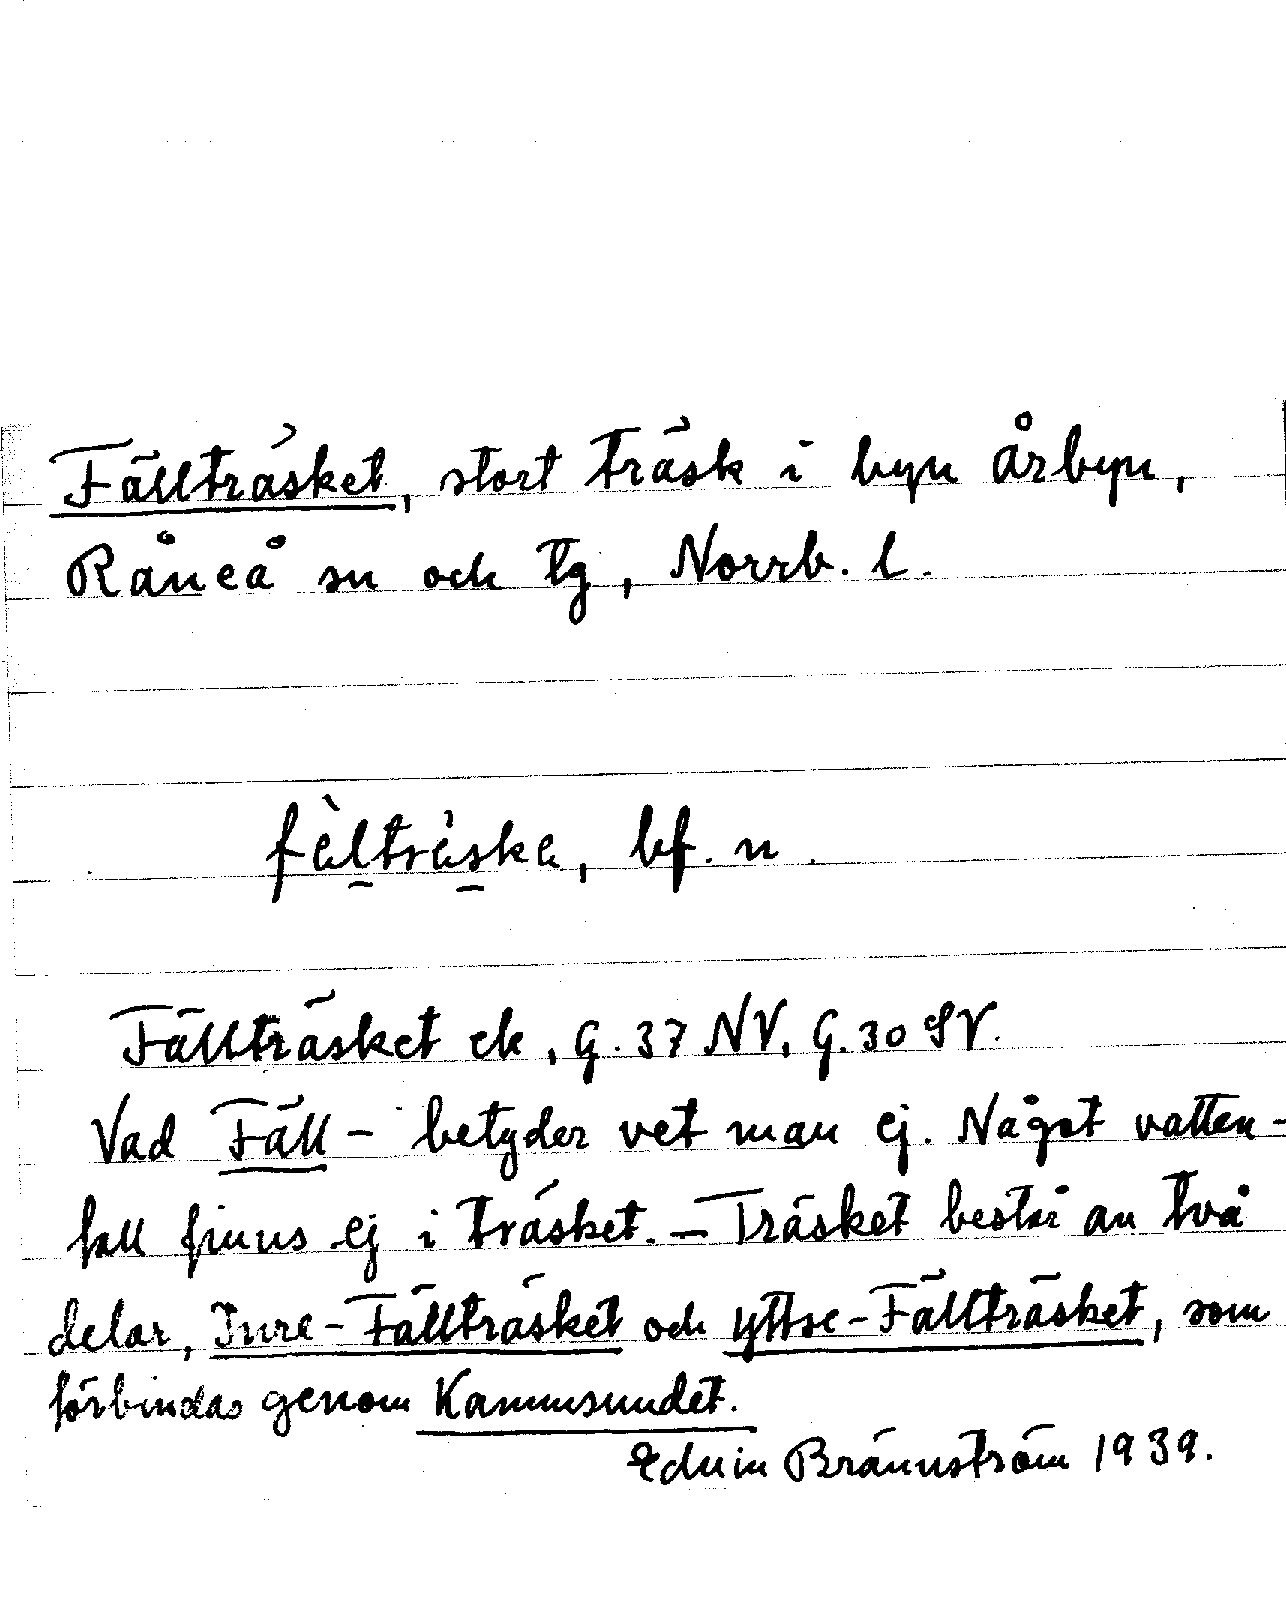 Fällträsket, stort träsk i byn Årbyn,
Råneå sn och tg, Norrb. l.
fèḷtrèske, bf. n.
Fällträsket ek, G. 37 NV, G. 30 SV.
Vad Fäll- betyder vet man ej. Något vatten-
fall finns ej i träsket. – Träsket består av två
delar, Inre-Fällträsket och Yttre-Fällträsket, som
förbindas genom
Edvin Brännström 1939.